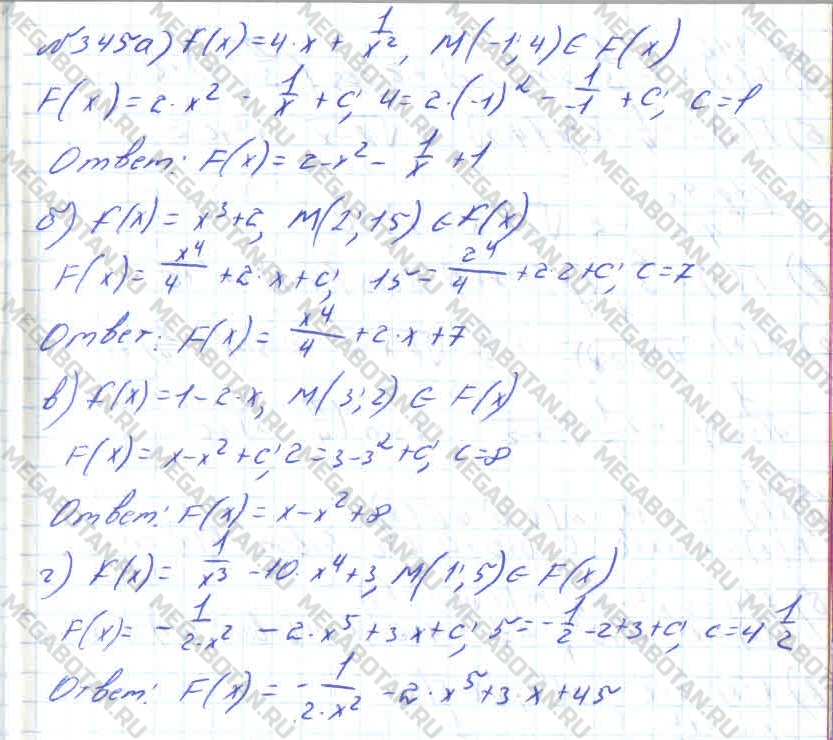 №345а) f(x)=4·x+1/x², M(-1;4)∈F(x)
F(x)=2·x²-1/x+C; 4=2·(-1)²-1/-1+C; C=1
Ответ: F(x)=2-x²-1/x+1
б) f(x)=x³+2, M(2;15)∈F(x)
F(x)=x⁴/4+2·x+C; 15=2⁴/4+2·2+C; C=7
Ответ: F(x)=x⁴/4+2·x+7
в) f(x)=1-2·x, M(3;2)∈F(x)
F(x)=x-x²+C; 2=3-3²+C; C=8
Ответ: F(x)=x-x²+8
г) f(x)=1/x³-10·x⁴+3, M(1;5)∈F(x)
F(x)=-1/2·x²-2·x⁵+3·x+C; 5=-1/2-2+3+C; C=4 1/2
Ответ: F(x)=-1/2·x²-2·x⁵+3·x+45
MEGABOTAN.RU